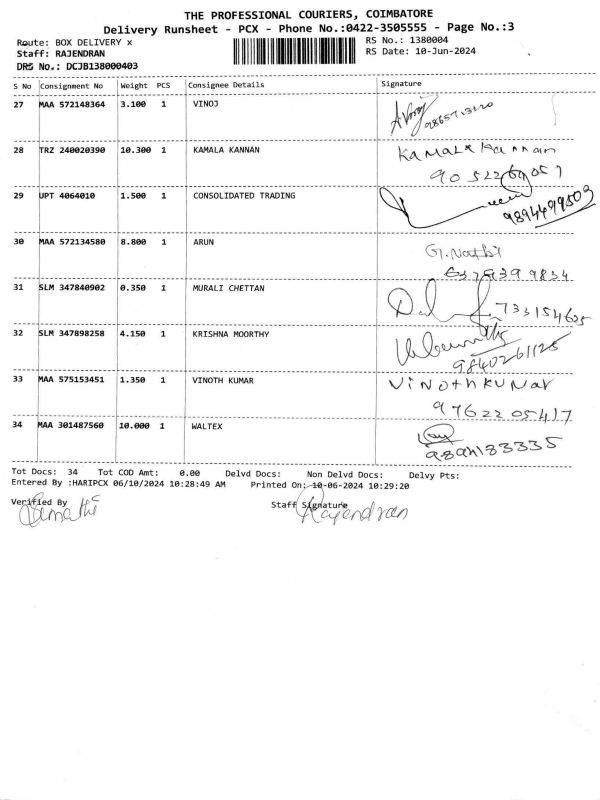 THE PROFESSIONAL COURIERS, COIMBATORE
Delivery Runsheet - PCX - Phone No.:0422-3505555 - Page No.:3
Route: BOX DELIVERY x
RS No.: 1380004
Staff: RAJENDRAN
RS Date: 10-Jun-2024
DRS No.: DCJB138000403
S No Consignment No Weight PCS Consignee Details Signature
27 MAA 572148364 3.100 1 VINOJ
28 TRZ 240020390 10.300 1 KAMALA KANNAN Kamala Kannan
29 UPT 4064010 1.500 1 CONSOLIDATED TRADING
9894499503
30 MAA 572134580 8.800 1 ARUN G. Nathi
6379399834
31 SLM 347840902 0.350 1 MURALI CHETTAN
733154625
32 SLM 347898258 4.150 1 KRISHNA MOORTHY
9840261125
33 MAA 575153451 1.350 1 VINOTH KUMAR Vinoth Kumar
97622 05417
34 MAA 301487560 10.000 1 WALTEX
Tot Docs: 34 Tot COD Amt: 0.00 Delvd Docs: Non Delvd Docs: Delvy Pts:
Entered By :HARIPCX 06/10/2024 10:28:49 AM Printed On: 10-06-2024 10:29:20
Verified By Staff Signature
Rajendran